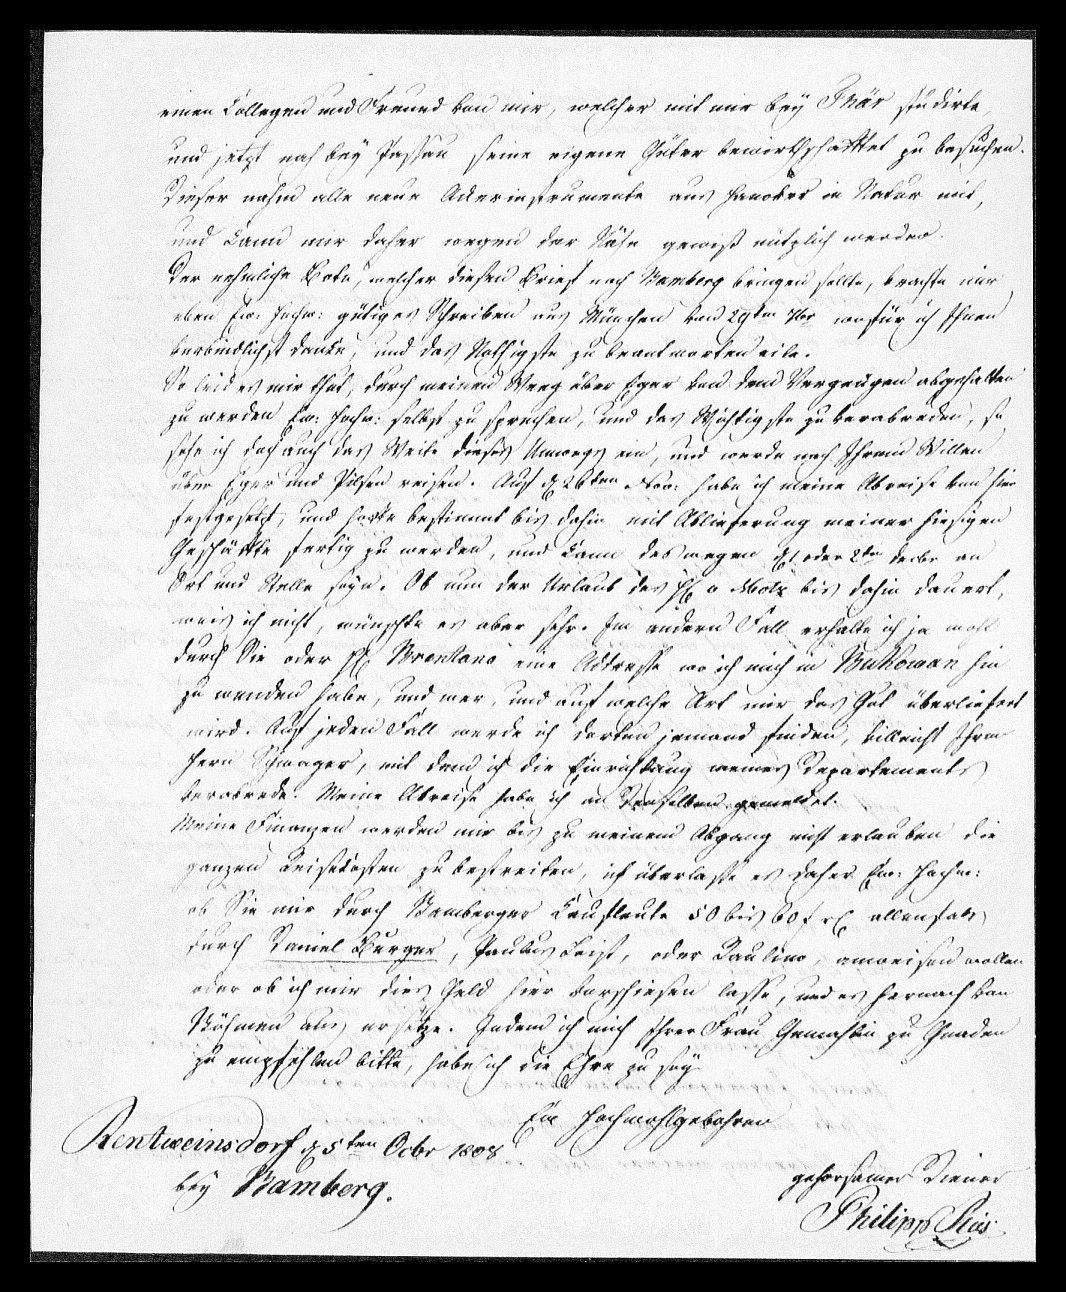 einen Collegen und Freund von mir, welcher mit mir bey Thär studirte,
und jetzt nah bey Passau seine eigene Güter bewirthschaftet zu besuchen.
Dieser nahm alle neue Ackerinstrumente aus Hanover in Natur mit,
und kann mir daher wegen der Nähe gewiß nützlich werden.
Der nehmliche Bote, welcher diesen Brief nach Bamberg bringen sollte, brachte mir
eben Ew: Hochw: gütiges Schreiben aus München von 29ten 7br wofür ich Ihnen
verbindlichst danke, und das Nöthigste zu beantworten eile.
So leid es mir thut, durch meinen Weeg über Eger von dem Vergnügen abgehalten
zu werden Ew: Hochw: selbst zu sprechen, und das Wichtigste zu verabreden, so
sehe ich doch auch das Weite dieses Umwegs ein, und werde nach Ihrem Willen
über Eger und Pilsen reisen. Auf d 26ten Nov: habe ich meine Abreise von hier
festgesetzt, und hoffe bestimmt bis dahin mit Ablieferung meiner hiesigen
Geschäfte fertig zu werden, und kann deswegen d 1 oder 2tn Decbr an
Ort und Stelle seyn. Ob nun der Urlaub des H v Motz bis dahin dauert,
weis ich nicht, wünschte es aber sehr. Im andern Fall erhalte ich ja wohl
durch Sie oder H Brentano eine Addresse wo ich mich in Bukowan hin
zu wenden habe, und wer, und auf welche Art mir das Gut überliefert
wird. Auf jeden Fall werde ich dorten jemand finden, villeicht Ihren
Herrn Schwager, mit dem ich die Einrichtung meines Departements
verabrede. Meine Abreise habe ich an Denselben gemeldet.
Meine Finanzen werden mir bis zu meinem Abgang nicht erlauben die
ganzen Reisekosten zu bestreiten, ich überlasse es daher Ew: Hochw:
ob Sie mir durch Bamberger Kaufleute 50 bis 60 f rh allenfals
durch Daniel Burger, Paulus Leist, oder Kauling, anweisen wollen
oder ob ich mir dies Geld hier vorschiesen lasse, und es hernach von
Böhmen aus ersetze. Indem ich mich Ihrer Frau Gemahlin zu Gnaden
zu empfehlen bitte, habe ich die Ehre zu seyn
Ew Hochwohlgebohren
Rentweinsdorf d 5ten Octbr 1808
bey Bamberg.
gehorsamer Diener
Philipp